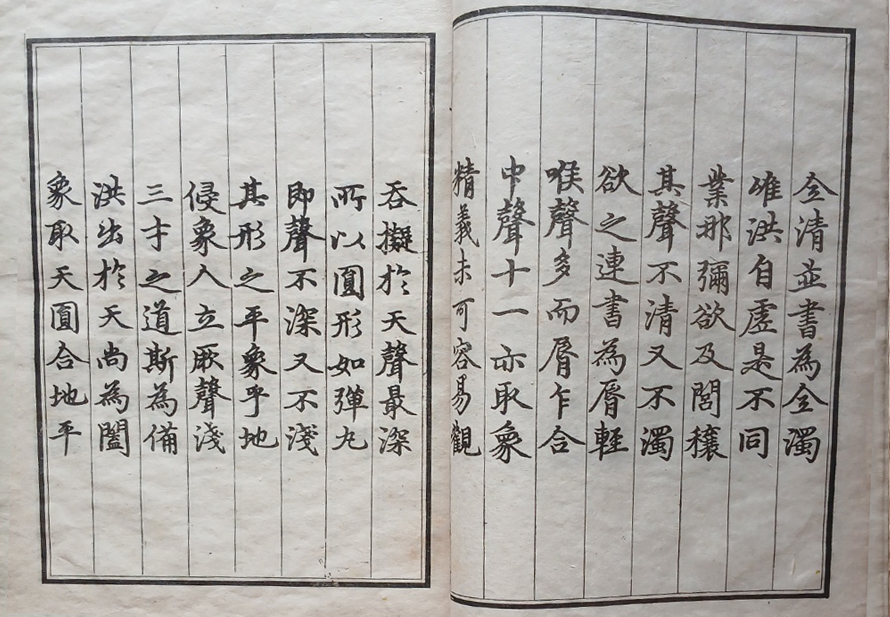 全清並書為全濁
唯洪自虛是不同
業那彌欲及閭穰
其聲不清又不濁
欲之連書為脣輕
喉聲多而脣乍合
中聲十一亦取象
精義未可容易觀
呑擬於天聲最深
所以圓形如彈丸
即聲不深又不淺
其形之平象乎地
侵象人立厥聲淺
三才之道斯為備
洪出於天尚為闔
象取天圓合地平